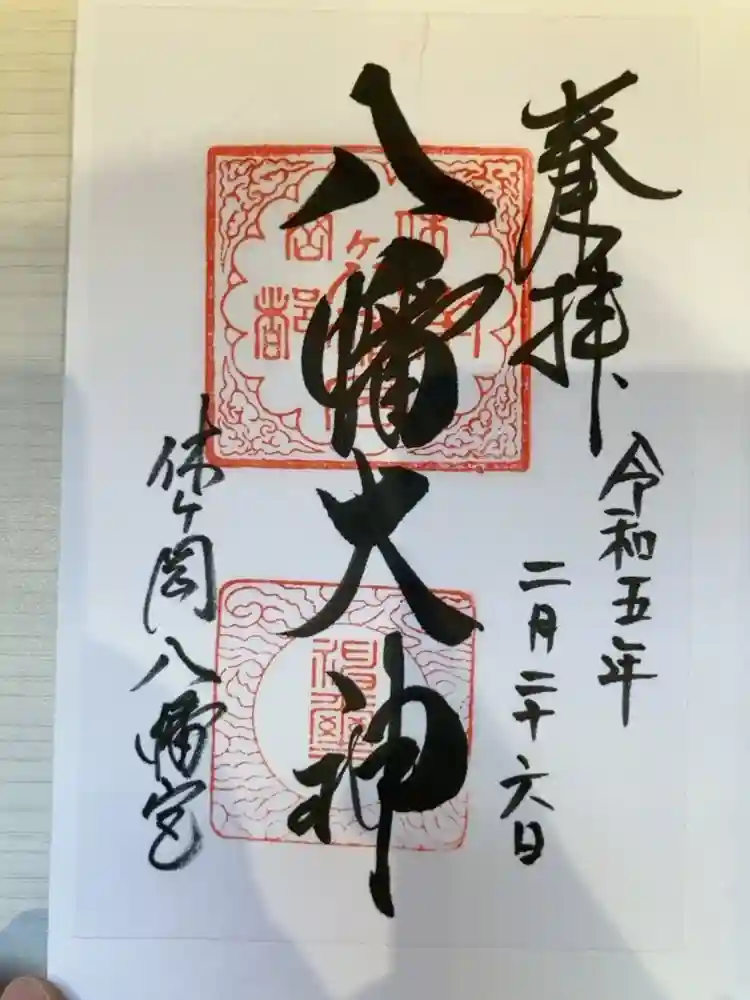 奉拝
令和五年
二月二十六日
八幡大神
休ヶ岡八幡宮